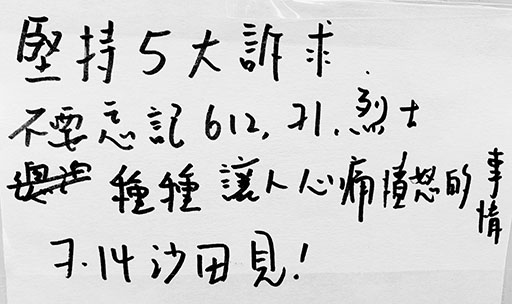 堅持5大訴求
不要忘記612,71,烈士
種種讓人心痛憤怒的事情
7.14沙田見!